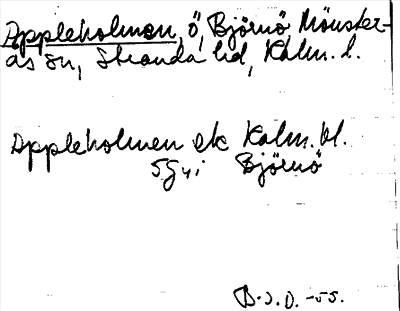 Äppleholmen, ö, Björnö, Mönster-
ås sn, Stranda hd, Kalm. l.
Äppleholmen ek Kalm. bl.
5 G Björnö
B.J.D. -55.